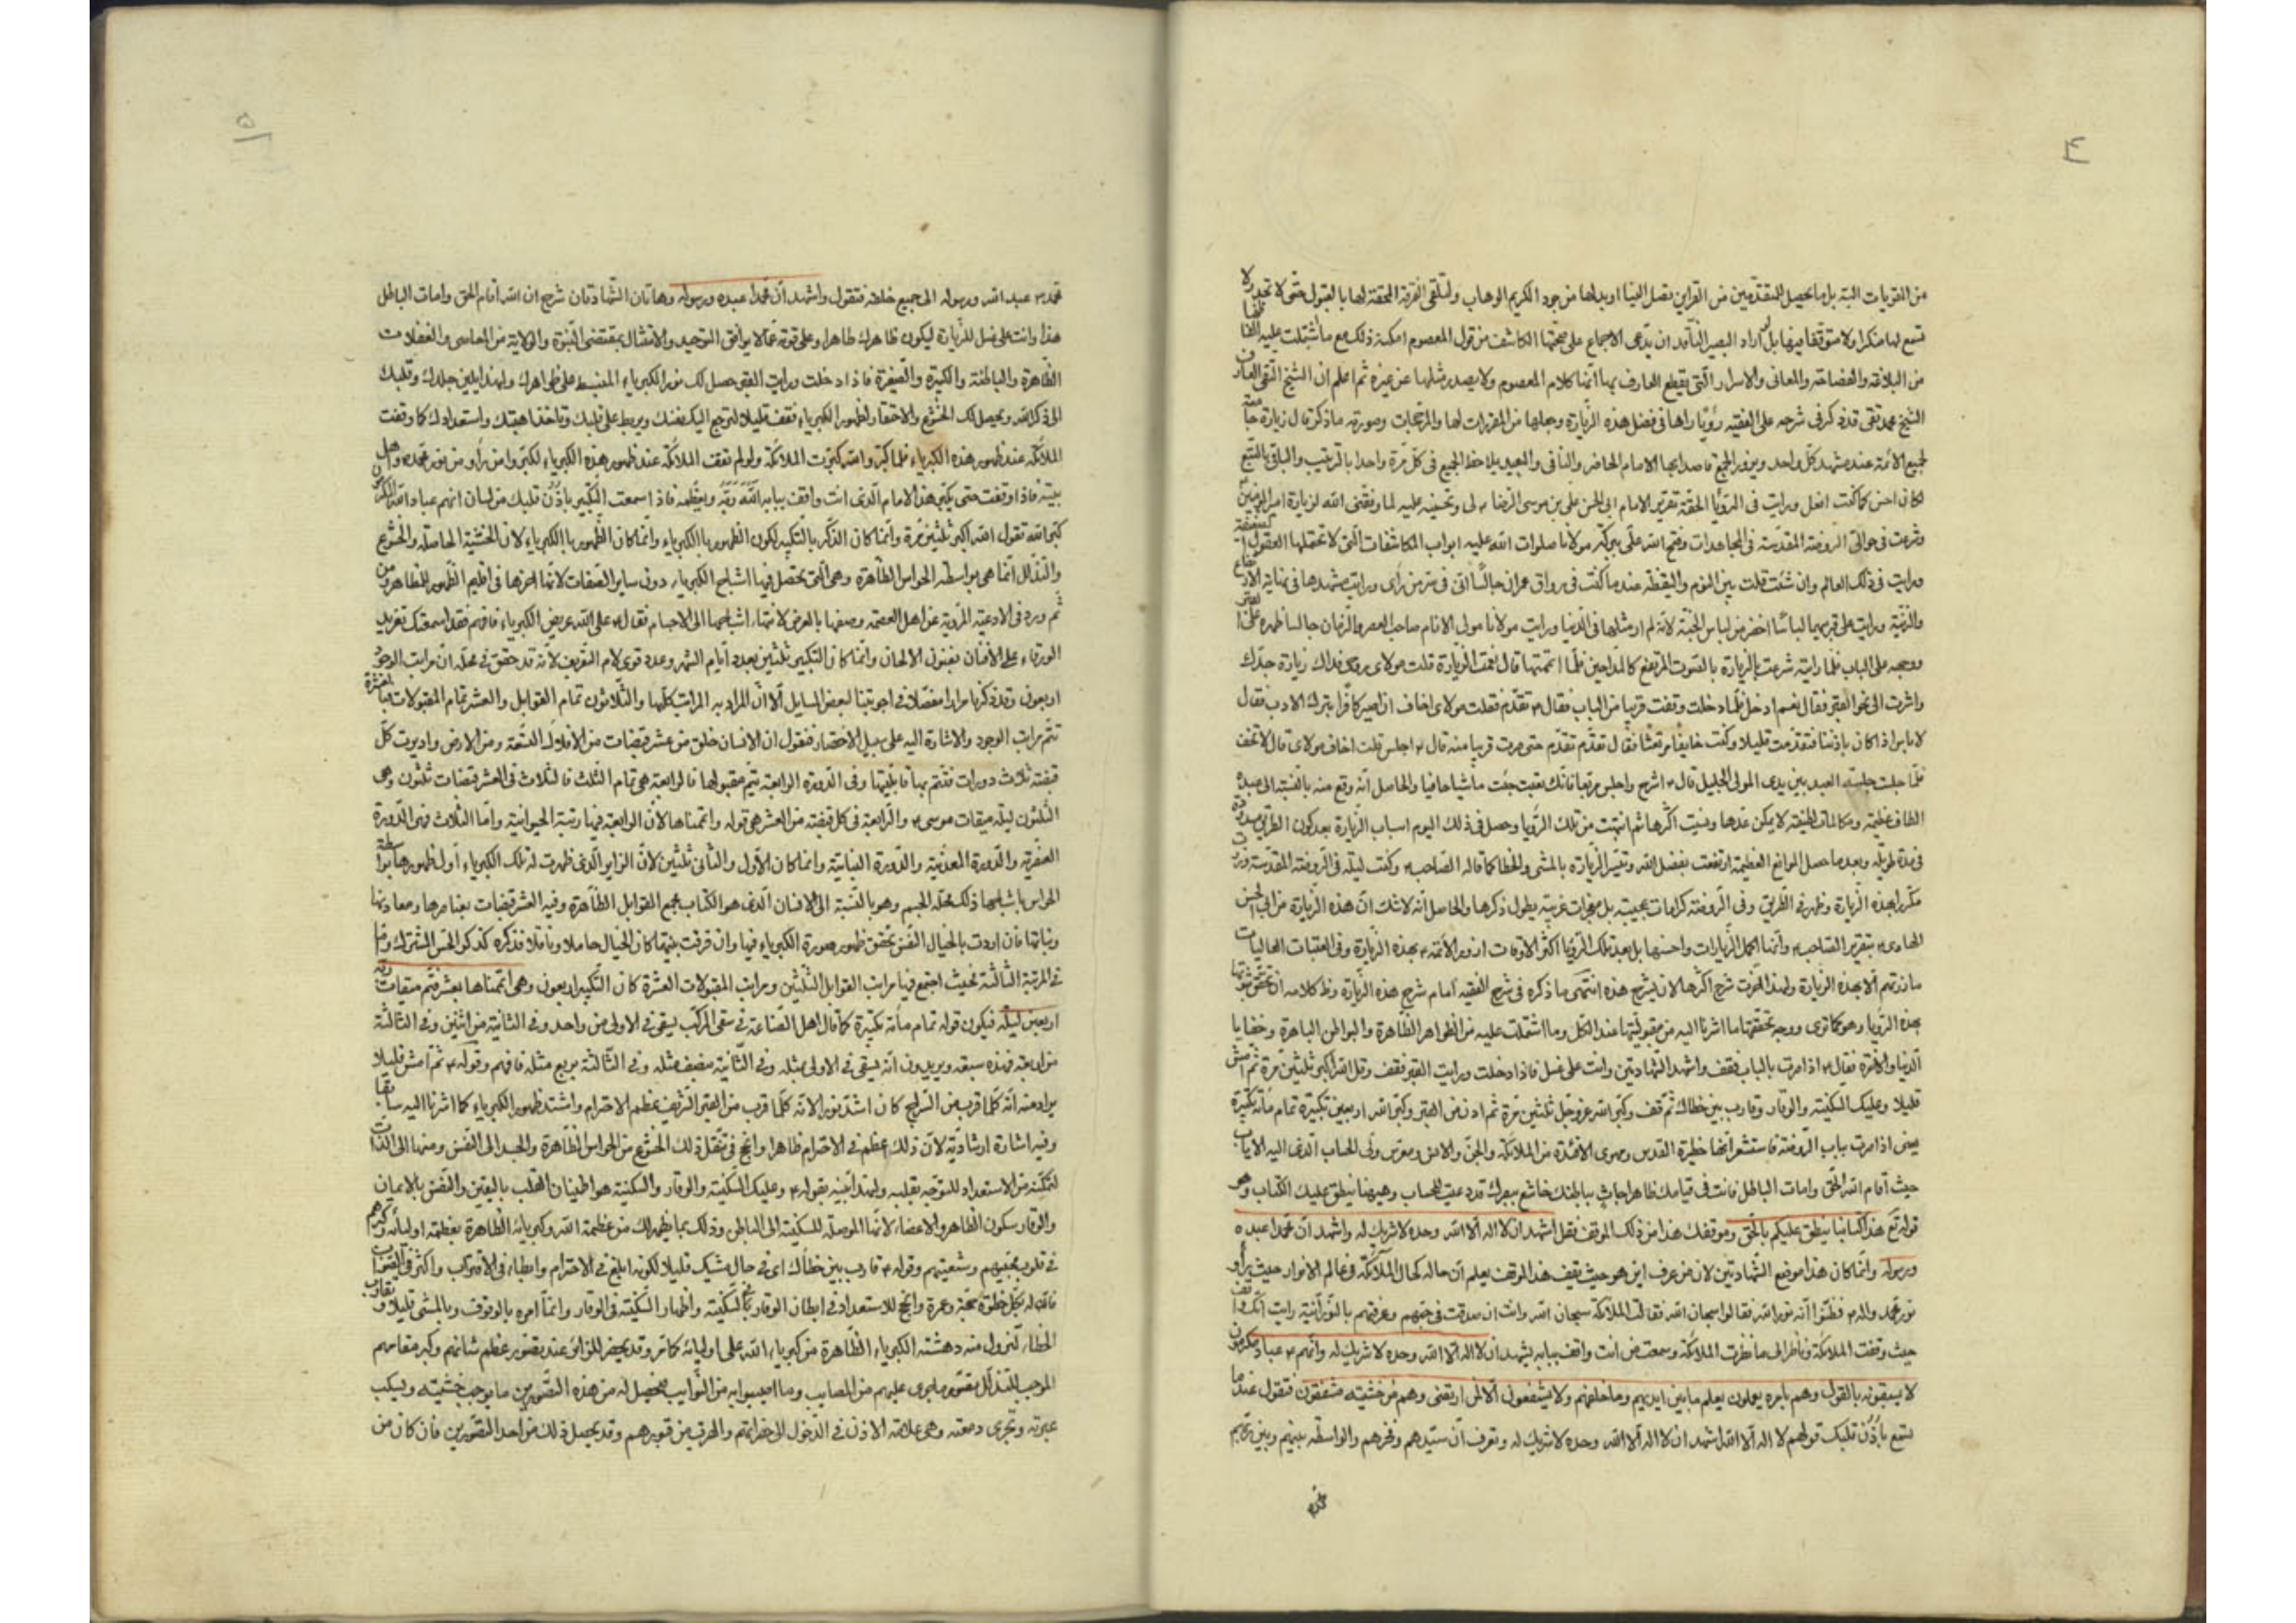 ٤
من القربات البتة بل ما يحصل للمتقدمين من القراين يصل الينا او بدلها من جود الكريم الوهاب ولتلقى الفرقة المحقة لها بالقبول حتى لا تجد ولا
تسمع لها منكرا ولا متوقفا فيها بل لو اراد البصير الناقد ان يدعى الاجماع على صحتها الكاشف من قول المعصوم امكنه ذلك مع ما اشتملت عليه الفاظها
من البلاغة والفصاحة والمعانى والاسرار التى يقطع العارف بها انها كلام المعصوم ولا يصدر مثلها عن غيره ثم اعلم ان الشيخ التقى العارف
الشيخ محمد تقى قد ذكر فى شرحه على الفقيه رؤيا راها فى فضل هذه الزيارة وجعلها من المقررات لها والمرجحات وصورته ما ذكر قال زيارة جامعة
لجميع الائمة عند مشهد كل واحد ويزور الجميع قاصدا بها الامام الحاضر والنائى والبعيد يلاحظ الجميع فى كل مرة واحدا بالترتيب والباقى بالتبع
لكان احسن كما كنت افعل ورايت فى الرؤيا الحقة تقرير الامام ابى الحسن على بن موسى الرضا ع لى وتحسينه عليه لما وفقنى الله لزيارة امير المؤمنين
وشرعت فى حوالى الروضة المقدسة فى المجاهدات وفتح الله على ببركة مولانا صلوات الله عليه ابواب المكاشفات التى لا تحتملها العقول الضعيفة
ورايت فى ذلك العالم وان شئت قلت بين النوم واليقظة عندما كنت فى رواق عمران جالسا انى فى سر من راى ورايت مشهدها فى نهاية الارتفاع
والزينة ورايت على قبريهما لباسا اخضر من لباس الجنة لانه لم ار مثلها فى الدنيا ورايت مولانا مولى الانام صاحب العصر والزمان جالسا ظهره على القبر
ووجهه على الباب فلما رايته شرعت بالزيارة بالصوت المرتفع كالمداحين فلما اتممتها قال نعمت الزيارة قلت مولاى روحى فداك زيارة جدك
واشرت الى نحو القبر فقال نعم ادخل فلما دخلت وقفت قريبا من الباب فقال ع تقدم فقلت مولاى اخاف ان اصير كافرا بترك الادب فقال
لا باس اذا كان باذننا فتقدمت قليلا وكنت خايفا مرتعشا فقال تقدم تقدم حتى صرت قريبا منه قال ع اجلس قلت اخاف مولاى قال لا تخف
فلما جلست جلسة العبد بين يدى المولى الجليل قال ع استرح واجلس مربعا فانك تعبت جئت ماشيا حافيا والحاصل انه وقع منه بالنسبة الى عبده
الطاف عظيمة ومكالمات لطيفة لا يمكن عدها ونسيت اكثرها ثم انتبهت من تلك الرؤيا وحصل فى ذلك اليوم اسباب الزيارة بعد كون الطريق مسدودة
فى مدة طويلة وبعد ما حصل الموانع العظيمة ارتفعت بفضل الله وتيسر الزيارة بالمشى والحفا كما قاله الصاحب ع وكنت ليلة فى الروضة المقدسة وزرت
مكررا بهذه الزيارة وظهر فى الطريق وفى الروضة كرامات عجيبة بل معجزات غريبة يطول ذكرها والحاصل انه لا شك ان هذه الزيارة من ابى الحسن
الهادى ع بتقرير الصاحب ع وانها اكمل الزيارات واحسنها بل بعد تلك الرؤيا اكثر الاوقات ازور الائمة ع بهذه الزيارة وفى العتبات العاليات
ما زرتهم الا بهذه الزيارة ولهذا اخرت شرح اكثرها لان يشرح هذه انتهى ما ذكره فى شرح الفقيه امام شرح هذه الزيارة وظ كلامه ان تحقق ثبوتها
بهذه الرؤيا وهو كما ترى ووجه تحققها ما اشرنا اليه من مقبوليتها عند الكل وما اشتملت عليه من الظواهر الظاهرة والبواطن الباهرة وخفايا
الدنيا والاخرة فقال ع اذا صرت بالباب فقف واشهد الشهادتين وانت على غسل فاذا دخلت ورايت القبر فقف وقل الله اكبر ثلثين مرة ثم امش
قليلا وعليك السكينة والوقار وقارب بين خطاك ثم قف وكبر الله عز وجل ثلثين مرة ثم ادن من القبر وكبر الله اربعين تكبيرة تمام مائة تكبيرة
يعنى اذا صرت بباب الروضة فاستشعر انها حظيرة القدس ومهوى الافئدة من الملائكة والجن والانس ومعرس ولى الحساب الذى اليه الاياب
حيث اقام الله الحق وامات الباطل فانت فى قيامك ظاهرا جاث بباطنك خاشع ببصرك قد دعيت للحساب وهيهنا ينطق عليك الكتاب وهو
قوله تع هذا كتابنا ينطق عليكم بالحق وموقفك هذا من ذلك الموقف فقل اشهد ان لا اله الا الله وحده لا شريك له واشهد ان محمدا عبده
ورسوله وانما كان هذا موضع الشهادتين لان من عرف اين هو حيث يقف هذا الموقف يعلم ان حاله كحال الملائكة فى عالم الانوار حيث راوا
نور محمد واله ع فظنوا انه نور الله فقالوا سبحان الله فقالت الملائكة سبحان الله وانت ان صدقت فى حبهم وعرفتهم بالنورانية رايت انك واقف
حيث وقفت الملائكة وناظر الى ما نظرت الملائكة وسمعت من انت واقف ببابه يشهد ان لا اله الا الله وحده لا شريك له وانهم ع عباد مكرمون
لا يسبقونه بالقول وهم بامره يعملون يعلم ما بين ايديهم وما خلفهم ولا يشفعون الا لمن ارتضى وهم من خشيته مشفقون فتقول عند ما
تسمع باذن قلبك قولهم لا اله الا الله اشهد ان لا اله الا الله وحده لا شريك له وتعرف ان سيدهم وفخرهم والواسطة بينهم وبين ربهم
محمد
٥
محمد ص عبد الله ورسوله الى جميع خلقه فتقول واشهد ان محمدا عبده ورسوله وهاتان الشهادتان شرح ان الله اقام الحق وامات الباطل
هذا وانت على غسل للزيارة ليكون ظاهرك طاهرا وعلى توبة عما لا يوافق التوحيد والامتثال بمقتضى النبوة والولاية من المعاصى والغفلات
الظاهرة والباطنة والكبيرة والصغيرة فاذا دخلت ورايت القبر حصل لك نور الكبرياء المنبسط على ظواهرك ولهذا يلين جلدك وقلبك
الى ذكر الله ويحصل لك الخشوع والاحتقار لظهور الكبرياء فتقف قليلا لترجع اليك نفسك ويربط على قلبك وتاخذ اهبتك واستعدادك كما وقفت
الملائكة عند ظهور هذه الكبرياء فلما كبروا الله كبرت الملائكة ولو لم تقف الملائكة عند ظهور هذه الكبرياء لكبروا من راو من نور محمد ص واهل
بيته فاذا وقفت حتى يكبر هذا الامام الذى انت واقف ببابه الله ربه ويعظمه فاذا سمعت التكبير باذن قلبك من لسان انهم عباد الله المكرمين
كبر الله تقول الله اكبر ثلثين مرة وانما كان الذكر بالتكبير لكون الظهور بالكبرياء وانما كان الظهور بالكبرياء لان الخشية الحاصلة والخشوع
والتذلل انما هى بواسطة الحواس الظاهرة وهى التى يحصل فيها اشباح الكبرياء دون ساير الصفات لانها اخرها فى اقليم الظهور للظاهر ومن
ثم ورد فى الادعية المروية عن اهل العصمة وصفها بالعرض لانتهاء اشباحها الى الاجسام فقال ع على الله عريض الكبرياء فافهم فقد اسمعتك تغريد
الورقاء على الافنان بفنون الالحان وانما كان التكبير ثلثين بعدد ايام الشهر وعدد قوى لام التعريف لانه قد حقق فى محله ان مراتب الوجود
اربعون وقد ذكرنا مرارا مفصلا فى اجوبتنا لبعض المسايل الا ان المراد به المراتب كلها والثلاثون تمام القوابل والعشر تمام المقبولات فبالعشرة
تتم مراتب الوجود والاشارة اليه على سبيل الاختصار فنقول ان الانسان خلق من عشر قبضات من الافلاك التسعة ومن الارض واديرت كل
قبضة ثلاث دورات فتتم بها قابليتها وفى الدورة الرابعة يتم مقبولها فالرابعة هى تمام الثلث فالثلاث فى العشر قبضات ثلثون وهى
الثلثون ليلة ميقات موسى ع والرابعة فى كل قبضة من العشر هى قوله واتممناها لان الرابعة فيها رتبة الحيوانية واما الثلاث فهى الدورة
العنصرية والدورة المعدنية والدورة النباتية وانما كان الاول والثانى ثلثين لان الزاير الذى ظهرت له تلك الكبرياء اول ظهورها بواسطة
الحواس باشباحها ذلك محله الجسم وهو بالنسبة الى الانسان الذى هو الكتاب مجمع القوابل الظاهرة وفيه العشر قبضات بعناصرها ومعادنها
ونباتها فان اردت بالخيال النفس تحقق ظهور صورة الكبرياء فيها وان فرقت بينهما كان الخيال حاملا وناقلا فذكره كذكر الحس المشترك واما
فى المرتبة الثالثة فحيث اجتمع فيها مراتب القوابل الثلثين ومراتب المقبولات العشرة كان التكبير اربعون وهى اتممناها بعشر فتم ميقات ربه
اربعين ليلة فيكون قوله تمام مائة تكبيرة كما قال اهل الصناعة فى سقى المركب يسقى فى الاولى من واحد وفى الثانية من اثنين وفى الثالثة
من اربعة فهذه سبعة ويريدون انه يسقى فى الاولى بمثله وفى الثانية بنصف مثله وفى الثالثة بربع مثله فافهم وقوله ع ثم امش قليلا
يراد منه انه كلما قرب من السراج كان اشد نورا لانه كلما قرب من القبر الشريف عظم الاحترام واشتد ظهور الكبرياء كما اشرنا اليه سابقا
وفيه اشارة ارشادية لان ذلك اعظم فى الاحترام ظاهرا وانجح فى تنقل ذلك الخشوع من الحواس الظاهرة والجسد الى النفس ومنها الى الذات
لتمكنه من الاستعداد للتوجه بقلبه ولهذا اتبعه بقوله ع وعليك السكينة والوقار والسكينة هو اطمينان القلب باليقين والنفس بالايمان
والوقار سكون الظاهر والاعضاء لانها الموصلة للسكينة الى الباطن وذلك بما يظهر لك من عظمة الله وكبريائه الظاهرة بعظمته اوليائه وكبرهم
فى قلوب محبيهم وشيعتهم وقوله ع قارب بين خطاك اى فى حال مشيك قليلا لكونه ابلغ فى الاحترام وابطاء فى الاقتراب واكثر فى الثواب
فان له بكل خطوة حجة وعمرة وانجح للاستعداد فى ابطان الوقار بالسكينة واظهار السكينة فى الوقار وانما امره بالوقوف وبالمشى قليلا وتقارب
الخطاء لتزول منه دهشة الكبرياء الظاهرة من كبرياء الله على اوليائه كما مر وقد يحضر للزائر عند تصور عظم شانهم وكبر مقامهم
الموجب للتذلل تصور ما جرى عليهم من المصايب وما اصيبوا به من النوايب فيحصل له من هذه التصورين ما يوجب خشيته ويسكب
عبرته وتجرى دمعته وهى علامة الاذن فى الدخول الى حضراتهم والقرب من قبورهم وقد يحصل ذلك من احد التصورين فان كان من